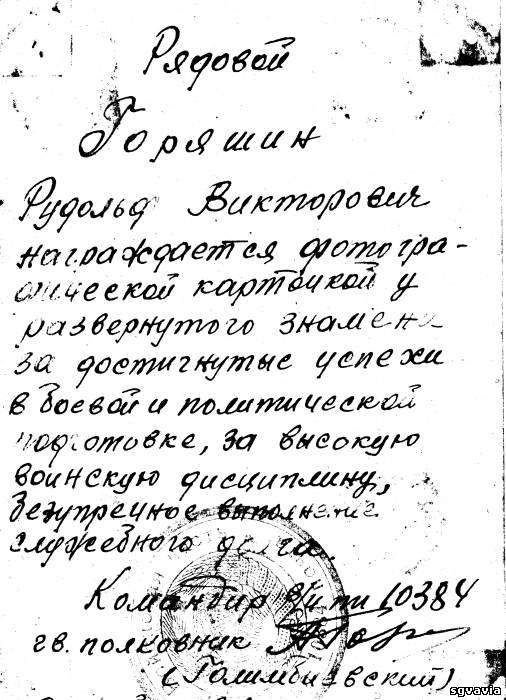 Рядовой
Горяшин
Рудольф Викторович
награждается фотогра-
фической карточкой у
развернутого знамени
за достигнутые успехи
в боевой и политической
подготовке, за высокую
воинскую дисциплину,
безупречное выполнение
служебного долга.
Командир в/ч пп 10384
гв. полковник
(Галимбиевский)
sgvavia